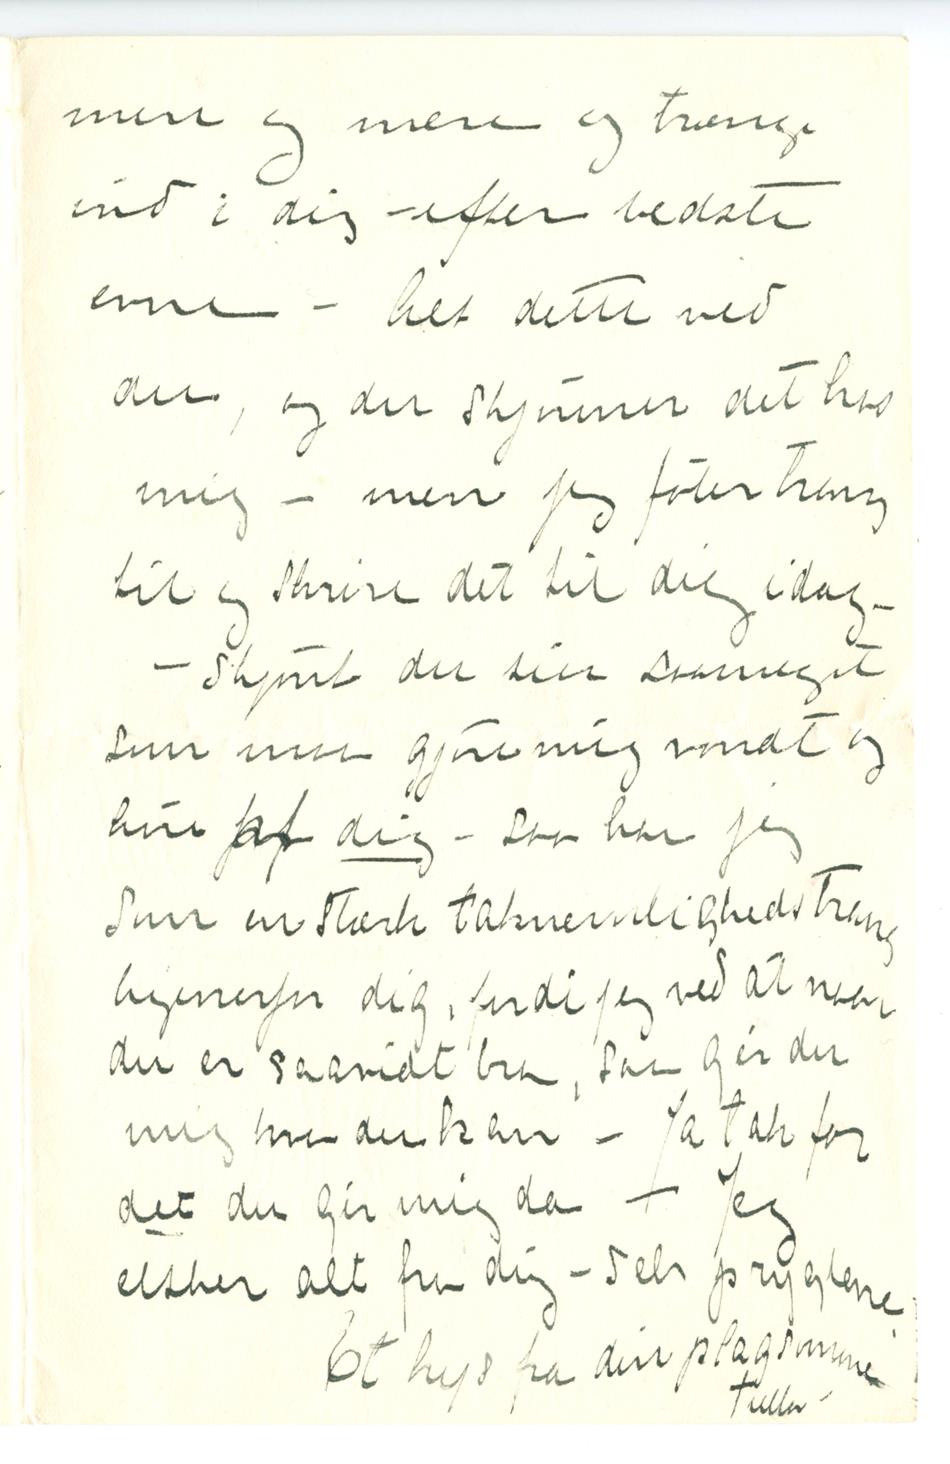 mere og mere og trænge
ind i dig – efter bedste
evne – Alt dette ved
du, og du skjønner det hos
mig – men jeg føler trang
til og skrive det til dig idag –
– Skjønt du sier saameget
som maa gjøre mig vondt og
høre af dig – saa har jeg
som en stærk taknemlighedstrang
ligeoverfor dig, fordi jeg ved at naar
du er saavidt bra, saa gir du
mig hva du kan – Ja tak for
det du gir mig da – Jeg
elsker alt fra dig – Selv pryglene.
Et kys fra din plagsomme
Tulla –